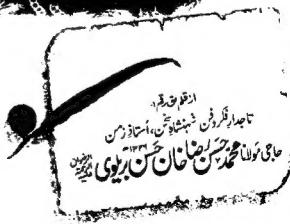 از قلم حقیقت رقم
تاجدارِ فکر و فن شہنشاہِ سخن، اُستاذِ زمن
حاجی مولانا محمد حسن رضا خان حسن بریلوی